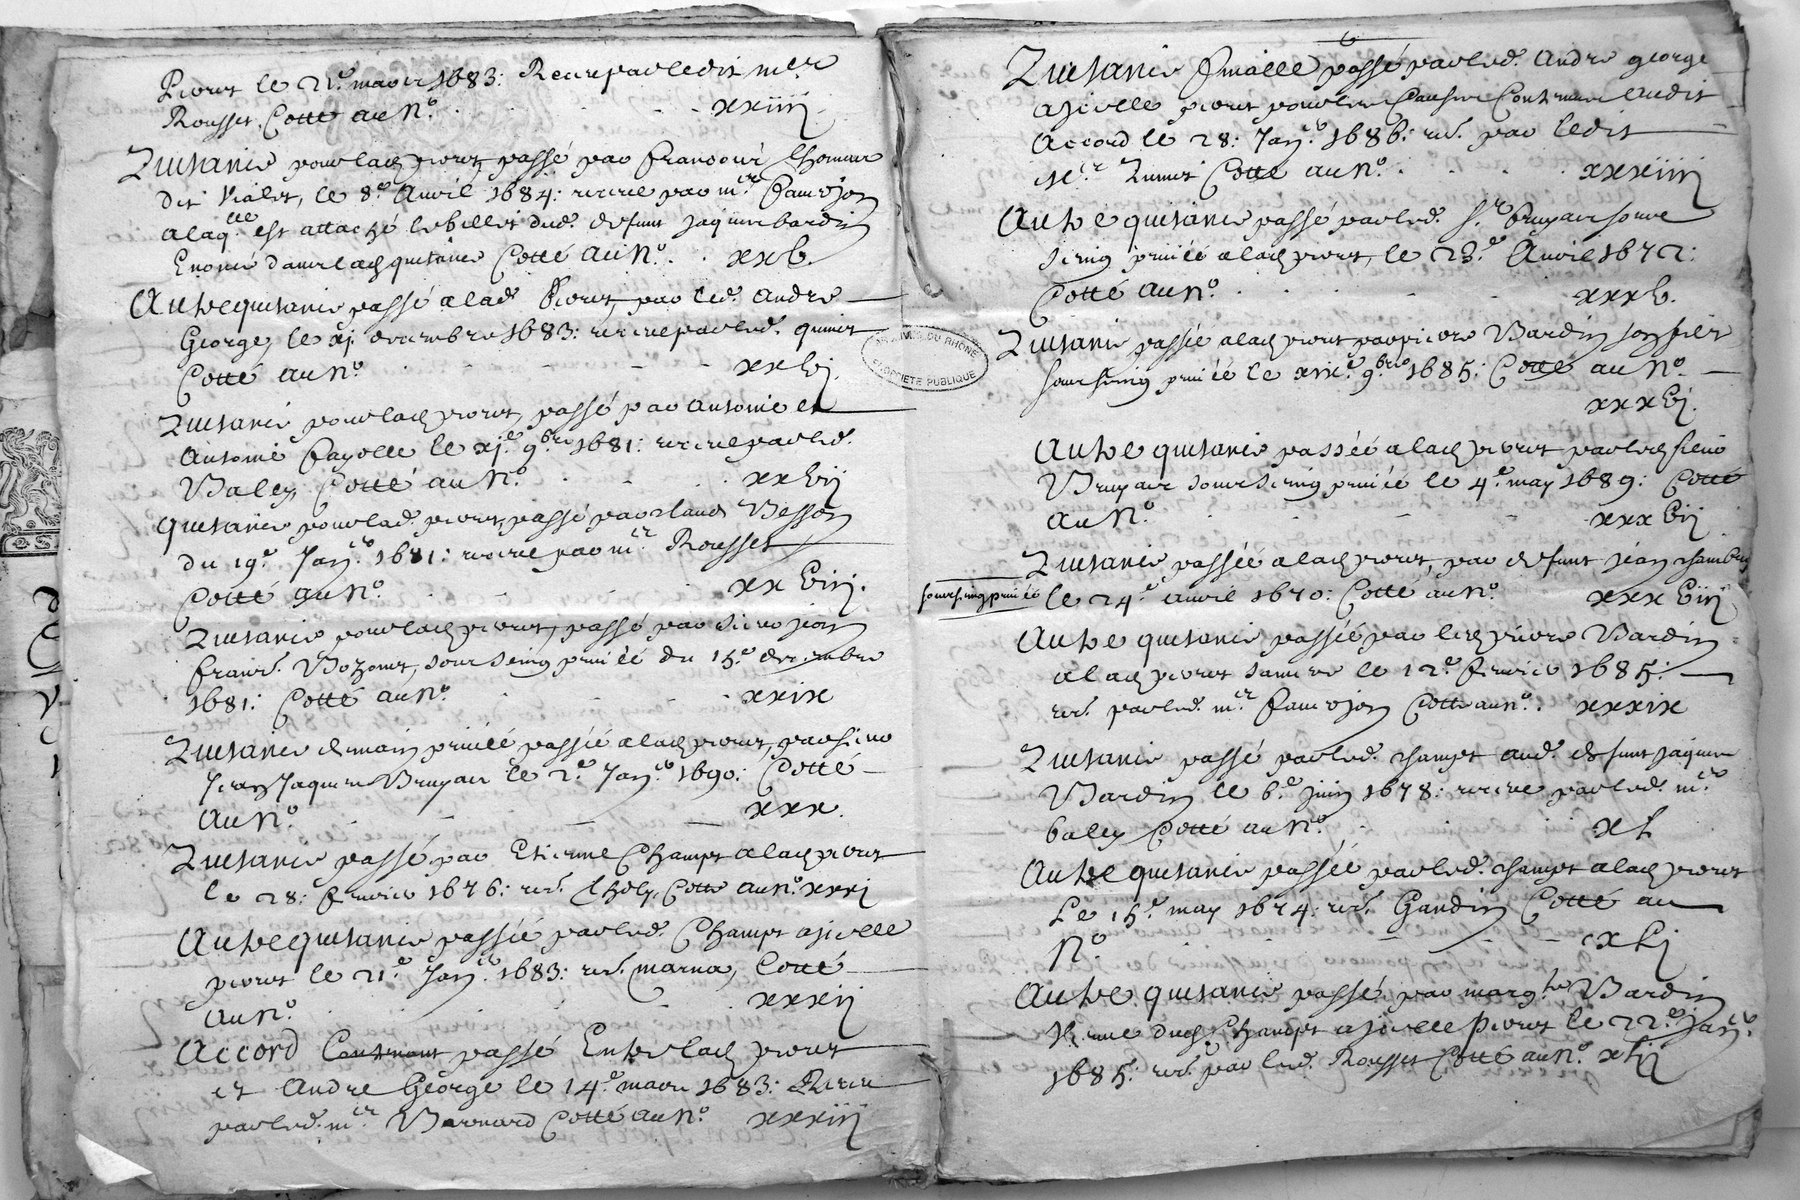 Pioret le 21e. mars 1683: Receu par ledit mer.
Rousset Cotté au No. xxiiij
Quitance pour lad. pioret passé par francois lhomme
dit Vialet, le 8e. Avril 1684: receue par mer. faurejon
a laqlle. est attaché le billet dud. defunt Jaques bardin
Enoncé dans lad. quitance Cotté au No. xxb.
Autre quitance passé a lad. Pioret par led. André
George, le xj decembre 1683: receue par led.
Cotté au No. xxbj.
Quitance pour lad. pioret, passé par Antoine et
Antoine fayolle le xje. 9bre 1681: receue par led.
Baley Cotté au No. xxbij
Quitance pour lad. pioret, passé par Besson
du 19e. Janer. 1681: receue par mer. Rousset
Cotté au No. xxbiij.
Quitance pour lad. pioret, passé par sieur jean
francs. Bozonet, sous seing privéé du 15e. decembre
1681: Cotté au No. xxix
Quitance de main privéé passéé a lad. pioret, par sieur
Jean Jaques Bruyas le 2e. Janer. 1690: Cotté
Au No. xxx.
Quitance passé par Etienne Champt a lad. pioret
le 28: fevrier 1676: rec. Choly, Cotté au No. xxxj
Autre quitance passéé par led. Champt a jcelle
pioret le 21e. Janer. 1683: rec. marna, Cotté
Au No. xxxij
Accord passé Entre lad. pioret
et André George le 14e. mars 1683: Receu
par led. mer. Bernard Cotté au No. xxxiij
6
Quitance finalle passé par led. André george
a jcelle pioret pour les Causes Contenues audit
Accord le 28: Janer. 1686: rec. par ledit
Mer. Cotté au No. xxxiiij
Autre quitance passé par led. sr. bruyas sous
seing privéé a lad. pioret, le 23e. Avril 1672:
Cotté au No. xxxb.
Quitance passéé a lad. pioret par pierre Bardin son fils
sous seing privéé le 9bre 1685: Cotté au No.
xxxbj.
Autre quitance passéé a lad. pioret par led. sieur
Bruyas sous seing privéé le 4e. may 1689: Cotté
Au No. xxxbij
Quitance passéé a lad. pioret, par defunt jean chambe
sous seing privéé le 24e. Avril 1670: Cotté au No. xxxbiij
Autre quitance passéé par led. pierre Bardin
a lad. pioret sa mere le 12e. fevrier 1685:
rec. par led. mer. faurejon Cotté au No. xxxix
Quitance passé par led. champt aud. defunt jaques
Bardin le 6e. juin 1678: receue par led. mer.
baley Cotté au No. xl
Autre quitance passéé par led. champt a lad. pioret
Le 15e. may 1674: rec. Gandin Cotté au
No. xlj
Autre quitance passé par margte Bardin
Veuve dud. Champt a jcelle pioret le 22e. janer.
1685: rec. par led. Rousset Cotté au No. xlij
ARCHIVES DU RHÔNE
SOCIÉTÉ PUBLIQUE